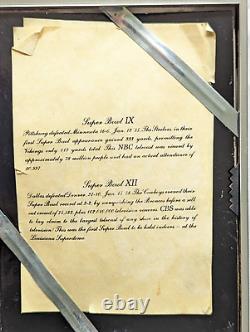 Super Bowl IX
Pittsburg defeated Minnesota 16-6, Jan. 12, 75. The Steelers, in their
first Super Bowl appearance gained 333 yards, permitting the
Vikings only 119 yards total. This NBC telecast was viewed by
approximately 78 million people and had an actual attendance of
80,997
Super Bowl XII
Dallas defeated Denver, 27-10, Jan. 15, 78. The Cowboys evened their
Super Bowl record at 2-2, by vanquishing the Broncos before a sell
out crowd of 75,583, plus 102,010,000 television viewers. CBS was able
to lay claim to the largest telecast of any show in the history of
television! This was the first Super Bowl to be held indoors - at the
Louisiana Superdome